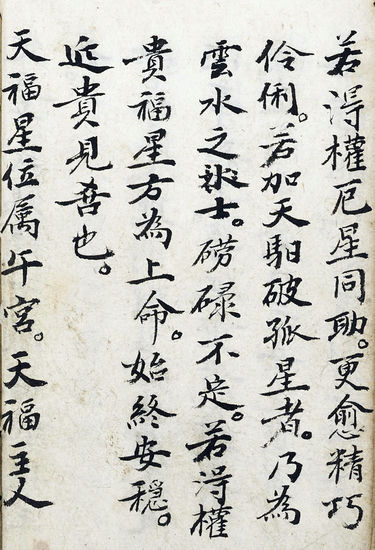 若淂權厄星同助。更愈精巧
伶俐。若加天馹破孤星者。乃為
雲水之士。磱碌不定。若淂權
貴福星方為上命。始終安穩。
近貴見也。
天福星位属午宮。天福主人